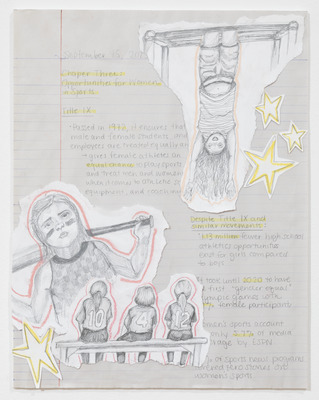 September 15, 20
Deeper Threads
Opportunities for Women
in Sports
Title IX
"Passed in 1972, it ensures that
male and female students and
employees are treated equally
+ gives female athletes an
equal chance to play sports
and treat men and women
when it comes to athletic sc
equipment, and coach
Despite Title IX and
similar movements:
"1.13 million fewer high school
athletics opportunities
exist for girls compared
to boys
It took until 2020 to have
first "gender equal"
lympic games with
% female participan
omen's sports account
only 5.7% of media
rage by ESPN
of sports news programs
women's sports.
10
4
12